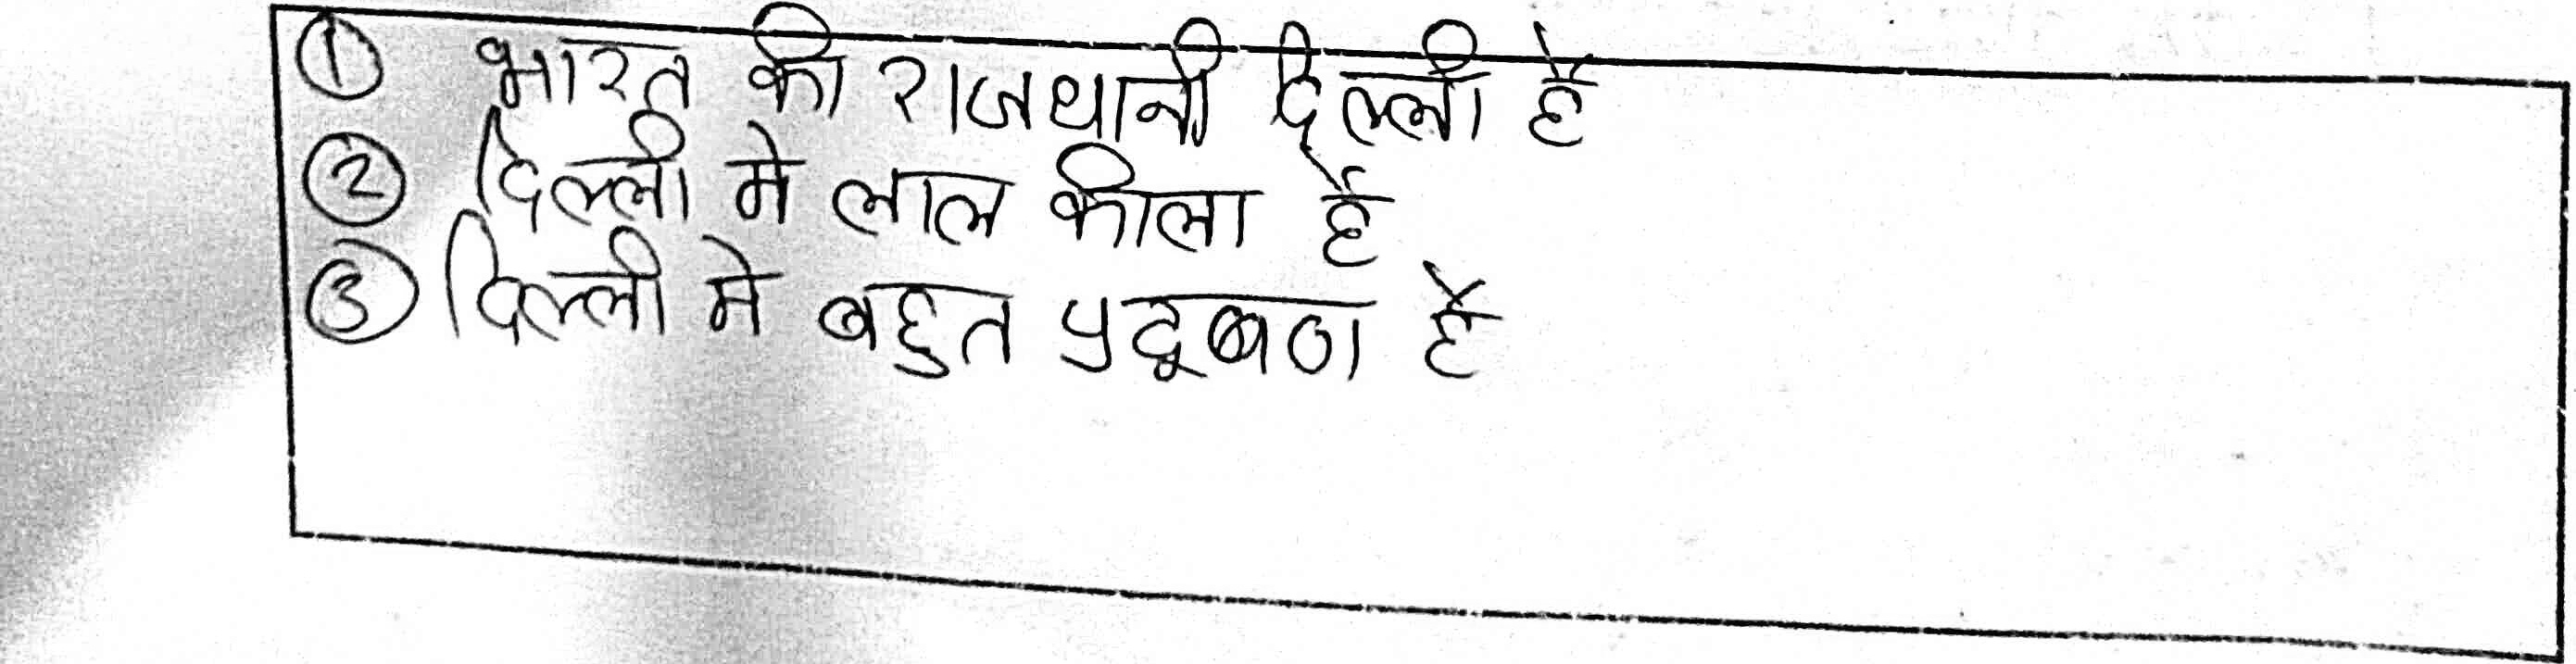 ① भारत की राजधानी दिल्ली है
② दिल्ली मे लाल कीला है
③ दिल्ली मे बहुत प्रदूषण है